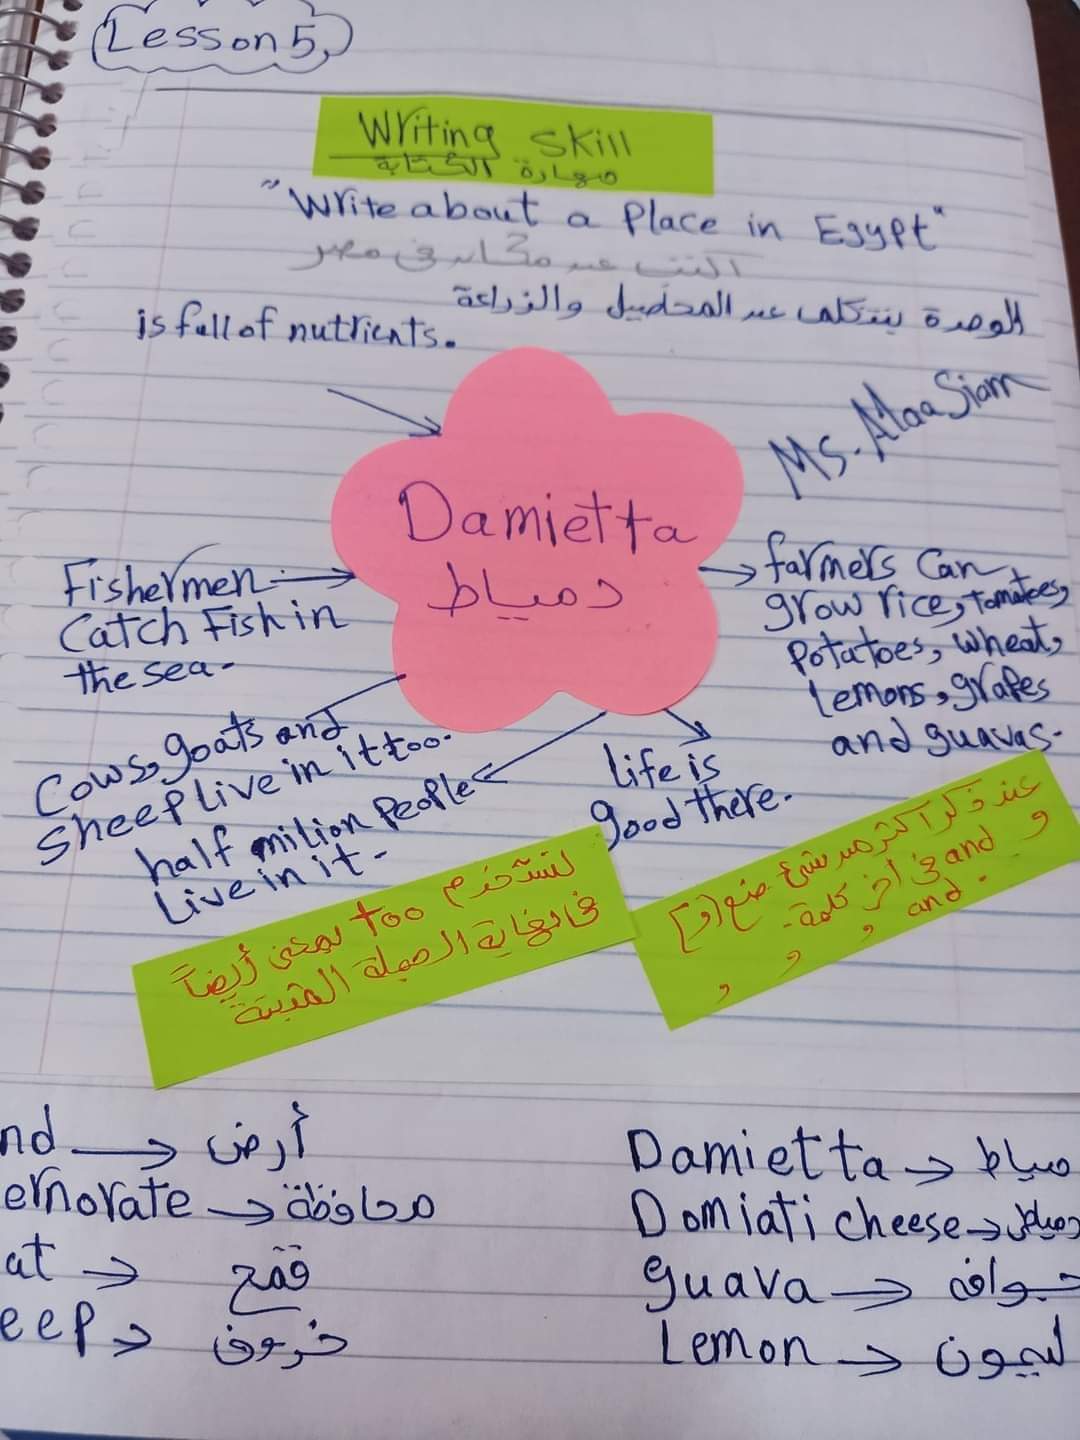 Lesson 5,
Writing skill
مهارة الكتابة
"Write about a Place in Egypt"
اكتب عن مكان فى مصر
الوحدة بتتكلم عن المحاصيل والزراعة
is full of nutrients.
Ms. Alaa Siam
Damietta
دمياط
Fishermen
Catch Fish in
the sea.
farmers Can
grow rice, tomatoes,
Potatoes, wheat,
Lemons, grapes
and guavas.
Cows, goats and
sheep live in it too.
half milion People
Live in it.
life is
good there.
نستخدم too بمعنى أيضاً
فى نهاية الجملة المثبتة
عند ذكر أكثر من شئ نضع (و)
and فى آخر كلمة. و
, , , and.
nd → أرض
ernorate → محافظة
at → قمح
eep → خروف
Damietta → مياط
Domiati cheese →
guava → جوافه
Lemon → ليمون